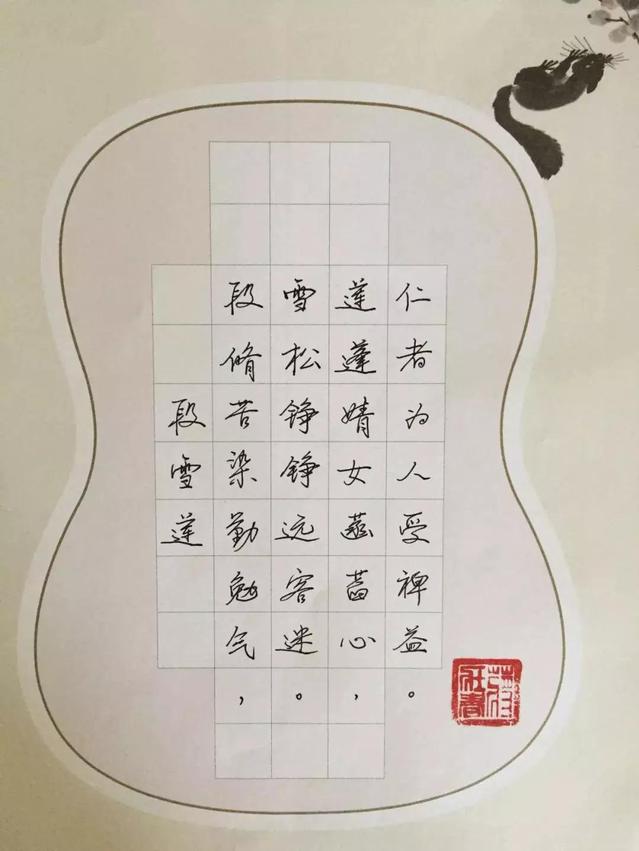 段雪莲
段脩苦染勤勉气，
雪松铮铮远客迷。
莲蓬婧女菡萏心，
仁者为人受裨益。